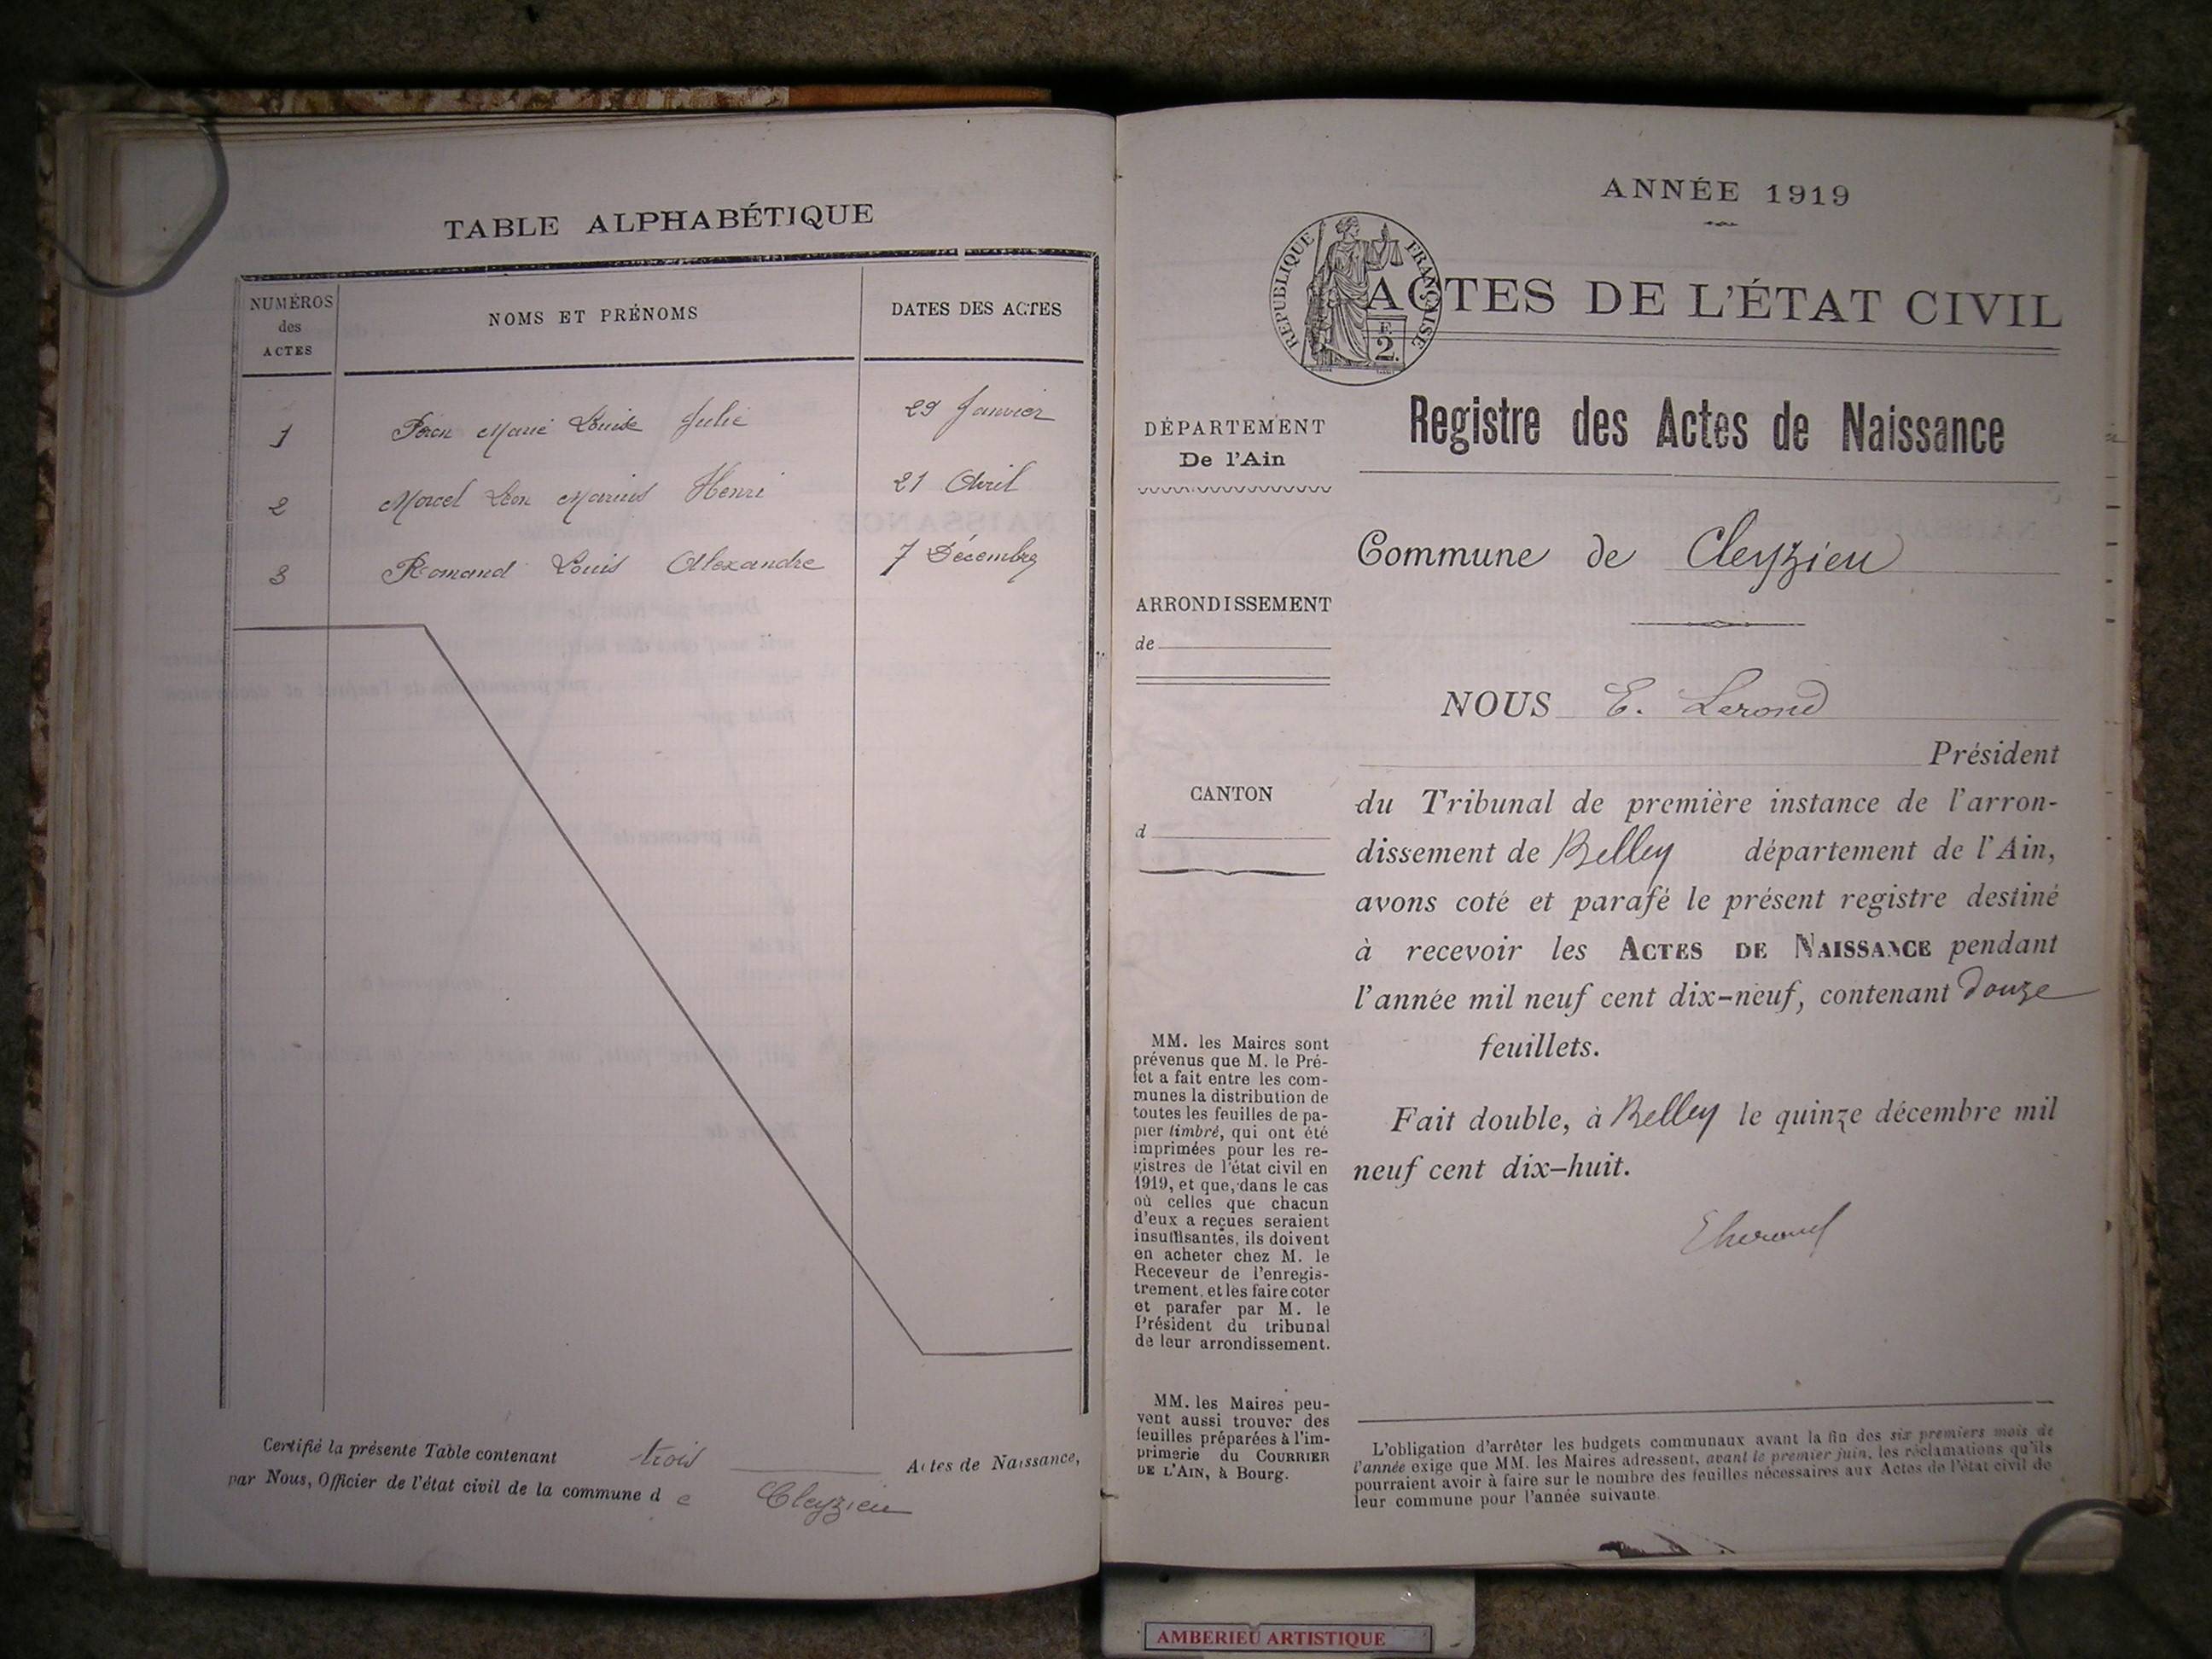 TABLE ALPHABÉTIQUE
NUMÉROS des ACTES
NOMS ET PRÉNOMS
DATES DES ACTES
1 Marie Louise Julie 29 Janvier
2 Marcel Léon Marius Henri 21 Avril
3 Romand Louis Alexandre 7 Décembre
Certifié la présente Table contenant trois Actes de Naissance,
par Nous, Officier de l'état civil de la commune de Cleyzieu
ANNÉE 1919
RÉPUBLIQUE FRANÇAISE
F. 2.
ACTES DE L'ÉTAT CIVIL
Registre des Actes de Naissance
DÉPARTEMENT
De l'Ain
ARRONDISSEMENT
de
CANTON
d
MM. les Maires sont
prévenus que M. le Pré-
fet a fait entre les com-
munes la distribution de
toutes les feuilles de pa-
pier timbré, qui ont été
imprimées pour les re-
gistres de l'état civil en
1919, et que, dans le cas
où celles que chacun
d'eux a reçues seraient
insuffisantes, ils doivent
en acheter chez M. le
Receveur de l'enregis-
trement, et les faire coter
et parafer par M. le
Président du tribunal
de leur arrondissement.
MM. les Maires peu-
vent aussi trouver des
feuilles préparées à l'im-
primerie du COURRIER
DE L'AIN, à Bourg.
Commune de Cleyzieu
NOUS E. Lerond
Président
du Tribunal de première instance de l'arron-
dissement de Belley département de l'Ain,
avons coté et parafé le présent registre destiné
à recevoir les ACTES DE NAISSANCE pendant
l'année mil neuf cent dix-neuf, contenant douze
feuillets.
Fait double, à Belley le quinze décembre mil
neuf cent dix-huit.
L'obligation d'arrêter les budgets communaux avant la fin des six premiers mois de
l'année exige que MM. les Maires adressent, avant le premier juin, les réclamations qu'ils
pourraient avoir à faire sur le nombre des feuilles nécessaires aux Actes de l'état civil de
leur commune pour l'année suivante.
AMBERIEU ARTISTIQUE